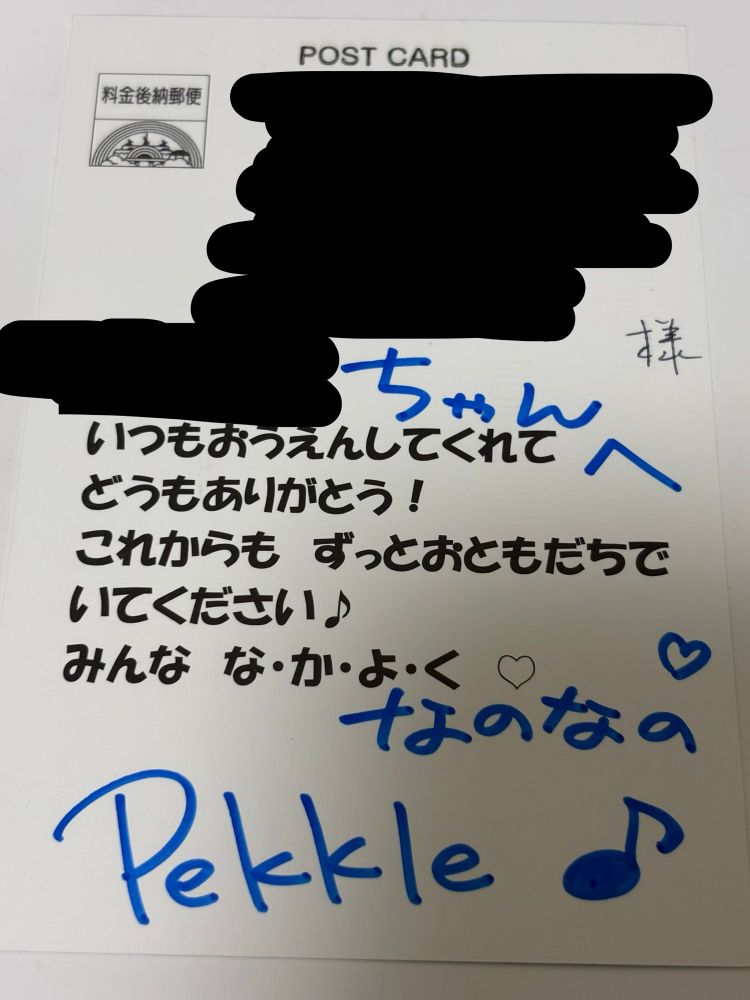 POST CARD
料金後納郵便
様
ちゃんへ
いつもおうえんしてくれて
どうもありがとう！
これからも ずっとおともだちで
いてください♪
みんな な・か・よ・く ♡
なのなの♡
Pekkle♪